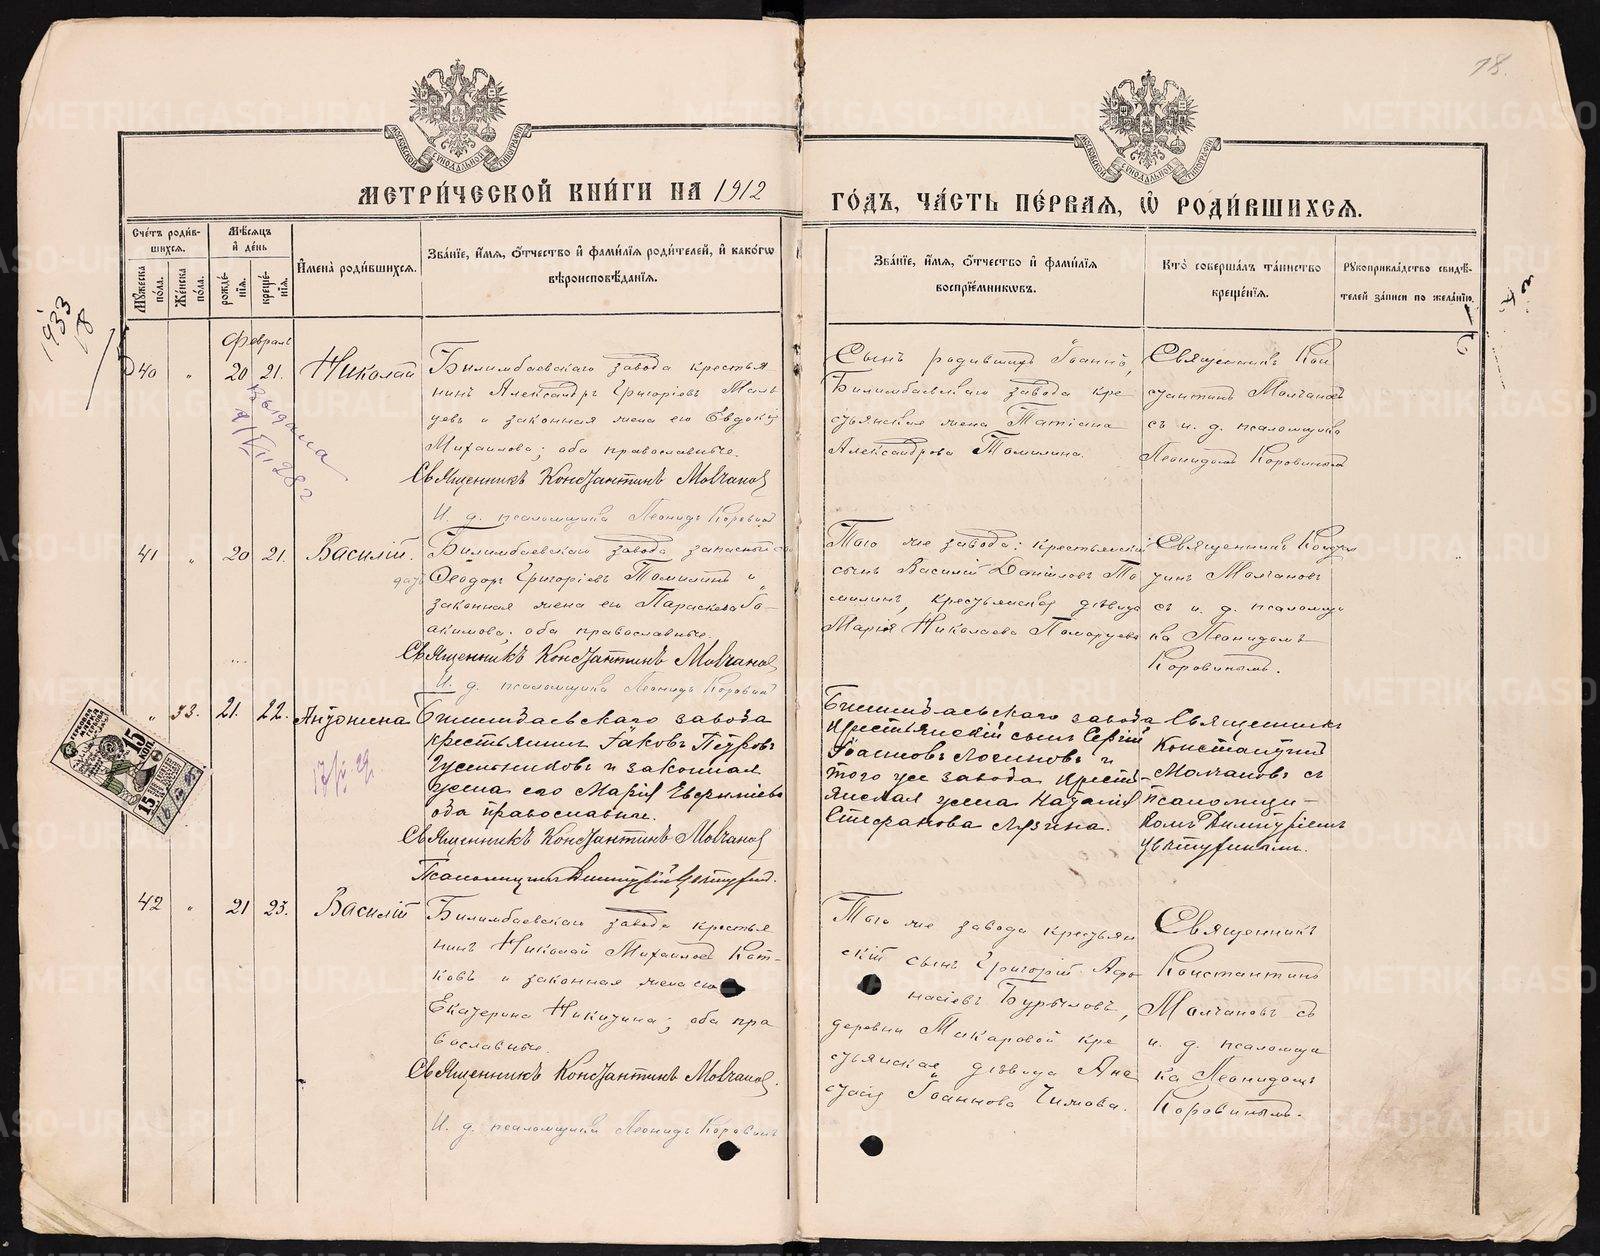 18.
МЕТРИ́ЧЕСКОЙ КНИ́ГИ НА 1912
ГО́ДЪ, ЧА́СТЬ ПЕ́РВАЯ, Ѿ РОДИ́ВШИХСЯ.
МОСКОВСКОЙ СѴНОДАЛЬНОЙ ТИПОГРАФІИ
МОСКОВСКОЙ СѴНОДАЛЬНОЙ ТИПОГРАФІИ
Сче́тъ роди́в-
шихся.
Мꙋ́жеска по́ла.
Же́нска по́ла.
Мѣ́сяцъ
и҆ де́нь
рожде́-
нїѧ.
креще́-
нїѧ.
И҆мена̀ роди́вшихся.
Зва́нїе, и҆́мѧ, ѻ҆́тчество и҆ фами́лїѧ роди́телей, и҆ како́гѡ
вѣроисповѣ́данїѧ.
Зва́нїе, и҆́мѧ, ѻ҆́тчество и҆ фами́лїѧ
воспрїе́мникѡвъ.
Кто̀ соверша́лъ та́инство
креще́нїѧ.
Рꙋкоприкла́дство свидѣ́-
телей за́писи по жела́нїю.
1933
18
Февраль
40 " 20 21. Николай
Билимбаевскаго завода крестья
нинъ Александръ Григоріевъ Маль
цевъ и законная жена его Евдокія
Михаилова; оба православные.
Священникъ Константинъ Молчановъ
И. д. псаломщика Леонидъ Коровинъ
Сынъ родившихъ Іоаннъ,
Билимбаевскаго завода кре
стьянская жена Татіана
Александрова Томилина.
Священникъ Кон
стантинъ Молчановъ
съ и. д. псаломщика
Леонидомъ Коровинымъ
Выдана
41 " 20 21. Василій.
Билимбаевскаго завода запасный сол
датъ Ѳеодоръ Григоріевъ Томилинъ и
законная жена его Параскева Іо
акимова; оба православные.
Священникъ Константинъ Молчановъ
И. д. псаломщика Леонидъ Коровинъ
Того же завода: крестьянскій
сынъ Василій Даніиловъ То
милинъ, крестьянская дѣвица
Марія Николаева
Священникъ Констан
тинъ Молчановъ
съ и. д. псаломщи
ка Леонидомъ
Коровинымъ.
" 33. 21. 22. Антонина
Билимбаевскаго завода
крестьянинъ Іаковъ Петровъ
Гусельниковъ и законная
жена его Марія Евфиміева
оба православные.
Священникъ Константинъ Молчановъ
Псаломщикъ Димитрій
Билимбаевскаго завода
крестьянскій сынъ Сергій
Іоанновъ Лосиновъ и
того же завода кресть-
янская жена Наталія
Стефанова Лузина.
Священникъ
Константинъ
Молчановъ съ
псаломщи-
комъ Димитріемъ
15 КОП.
15
42 " 21 23. Василій
Билимбаевскаго завода крестья
нинъ Николай Михаиловъ Кот-
ковъ и законная жена его
Екатерина Никитина; оба пра
вославные.
Священникъ Константинъ Молчановъ.
И. д. псаломщика Леонидъ Коровинъ
Того же завода крестьян
скій сынъ Григорій Афа
насіевъ Бурыловъ,
деревни Макаровой кре
стьянская дѣвица Ана
стасія Іоаннова Чижова.
Священникъ
Константинъ
Молчановъ съ
и. д. псаломщи
ка Леонидомъ
Коровинымъ.
METRIKI.GASO-URAL.RU